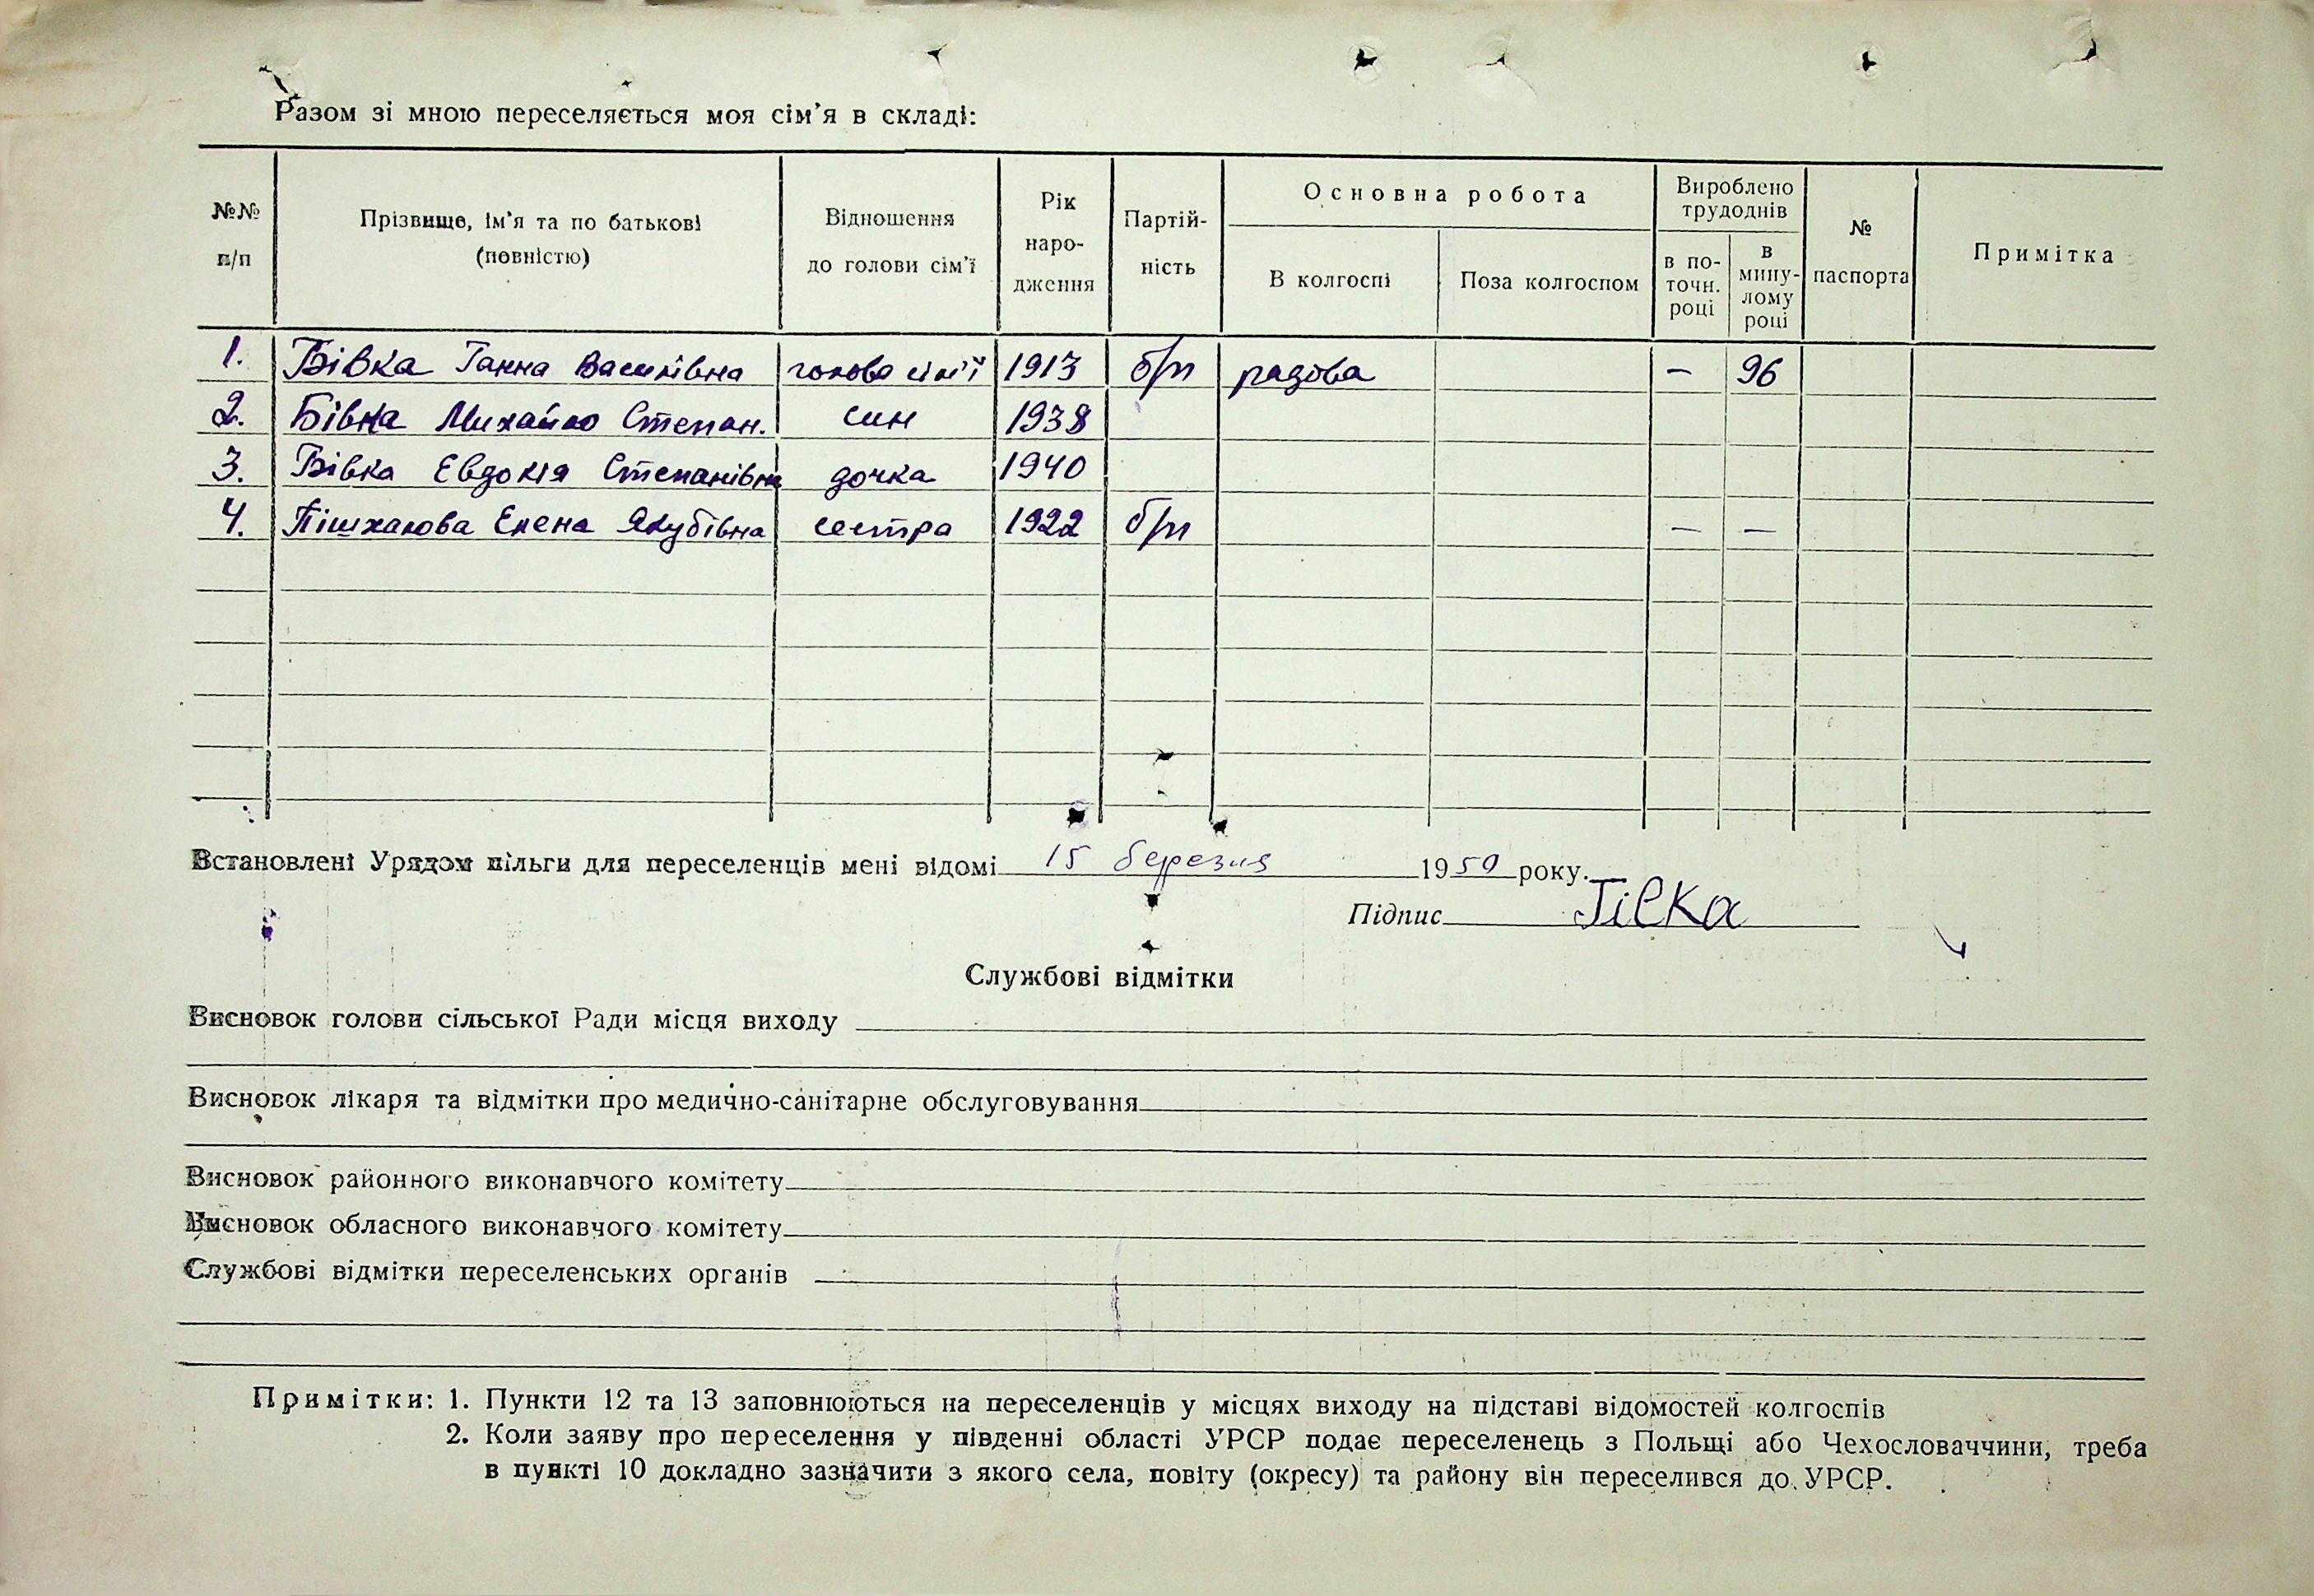 Разом зі мною переселяється моя сім'я в складі:
№№ п/п
Прізвище, ім'я та по батькові (повністю)
Відношення до голови сім'ї
Рік народження
Партійність
Основна робота
В колгоспі
Поза колгоспом
Вироблено трудоднів
в поточн. році
в минулому році
№ паспорта
Примітка
1. Бівка Ганна Василівна голова сім'ї 1913 б/п рядова — 96
2. Бівка Михайло Степан. син 1938
3. Бівка Евдокія Степанівна дочка 1940
4. Елена Якубівна сестра 1922 б/п — —
Встановлені Урядом пільги для переселенців мені відомі 15 березня 1950 року.
Підпис
Службові відмітки
Висновок голови сільської Ради місця виходу
Висновок лікаря та відмітки про медично-санітарне обслуговування
Висновок районного виконавчого комітету
Висновок обласного виконавчого комітету
Службові відмітки переселенських органів
Примітки: 1. Пункти 12 та 13 заповнюються на переселенців у місцях виходу на підставі відомостей колгоспів
2. Коли заяву про переселення у південні області УРСР подає переселенець з Польщі або Чехословаччини, треба
в пункті 10 докладно зазначити з якого села, повіту (окресу) та району він переселився до УРСР.